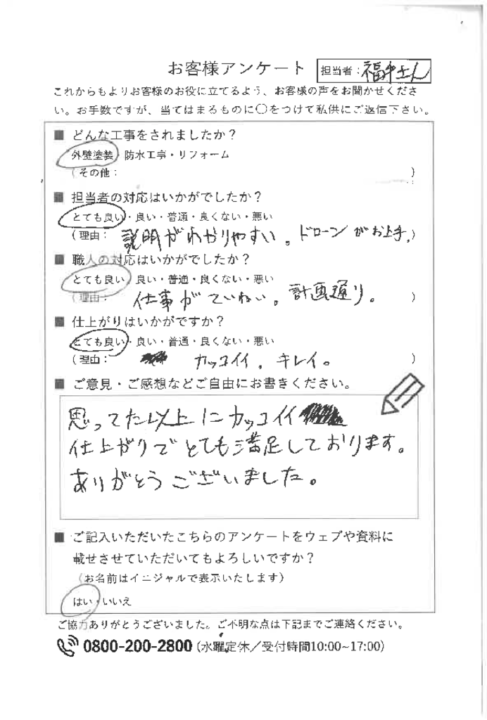 お客様アンケート 担当者：福中さん
これからもよりお客様のお役に立てるよう、お客様の声をお聞かせくださ
い。お手数ですが、当てはまるものに〇をつけて私供にご返信下さい。
■ どんな工事をされましたか？
外壁塗装・防水工事・リフォーム
（その他： ）
■ 担当者の対応はいかがでしたか？
とても良い・良い・普通・良くない・悪い
（理由： 説明がわかりやすい。ドローンがお上手。）
■ 職人の対応はいかがでしたか？
とても良い・良い・普通・良くない・悪い
（理由： 仕事がていねい。計画通り。 ）
■ 仕上がりはいかがですか？
とても良い・良い・普通・良くない・悪い
（理由： カッコイイ、キレイ。 ）
■ ご意見・ご感想などご自由にお書きください。
思ってた以上にカッコイイ
仕上がりでとても満足しております。
ありがとうございました。
■ ご記入いただいたこちらのアンケートをウェブや資料に
載せさせていただいてもよろしいですか？
（お名前はイニシャルで表示いたします）
はい・いいえ
ご協力ありがとうございました。ご不明な点は下記までご連絡ください。
0800-200-2800（水曜定休／受付時間10:00~17:00）